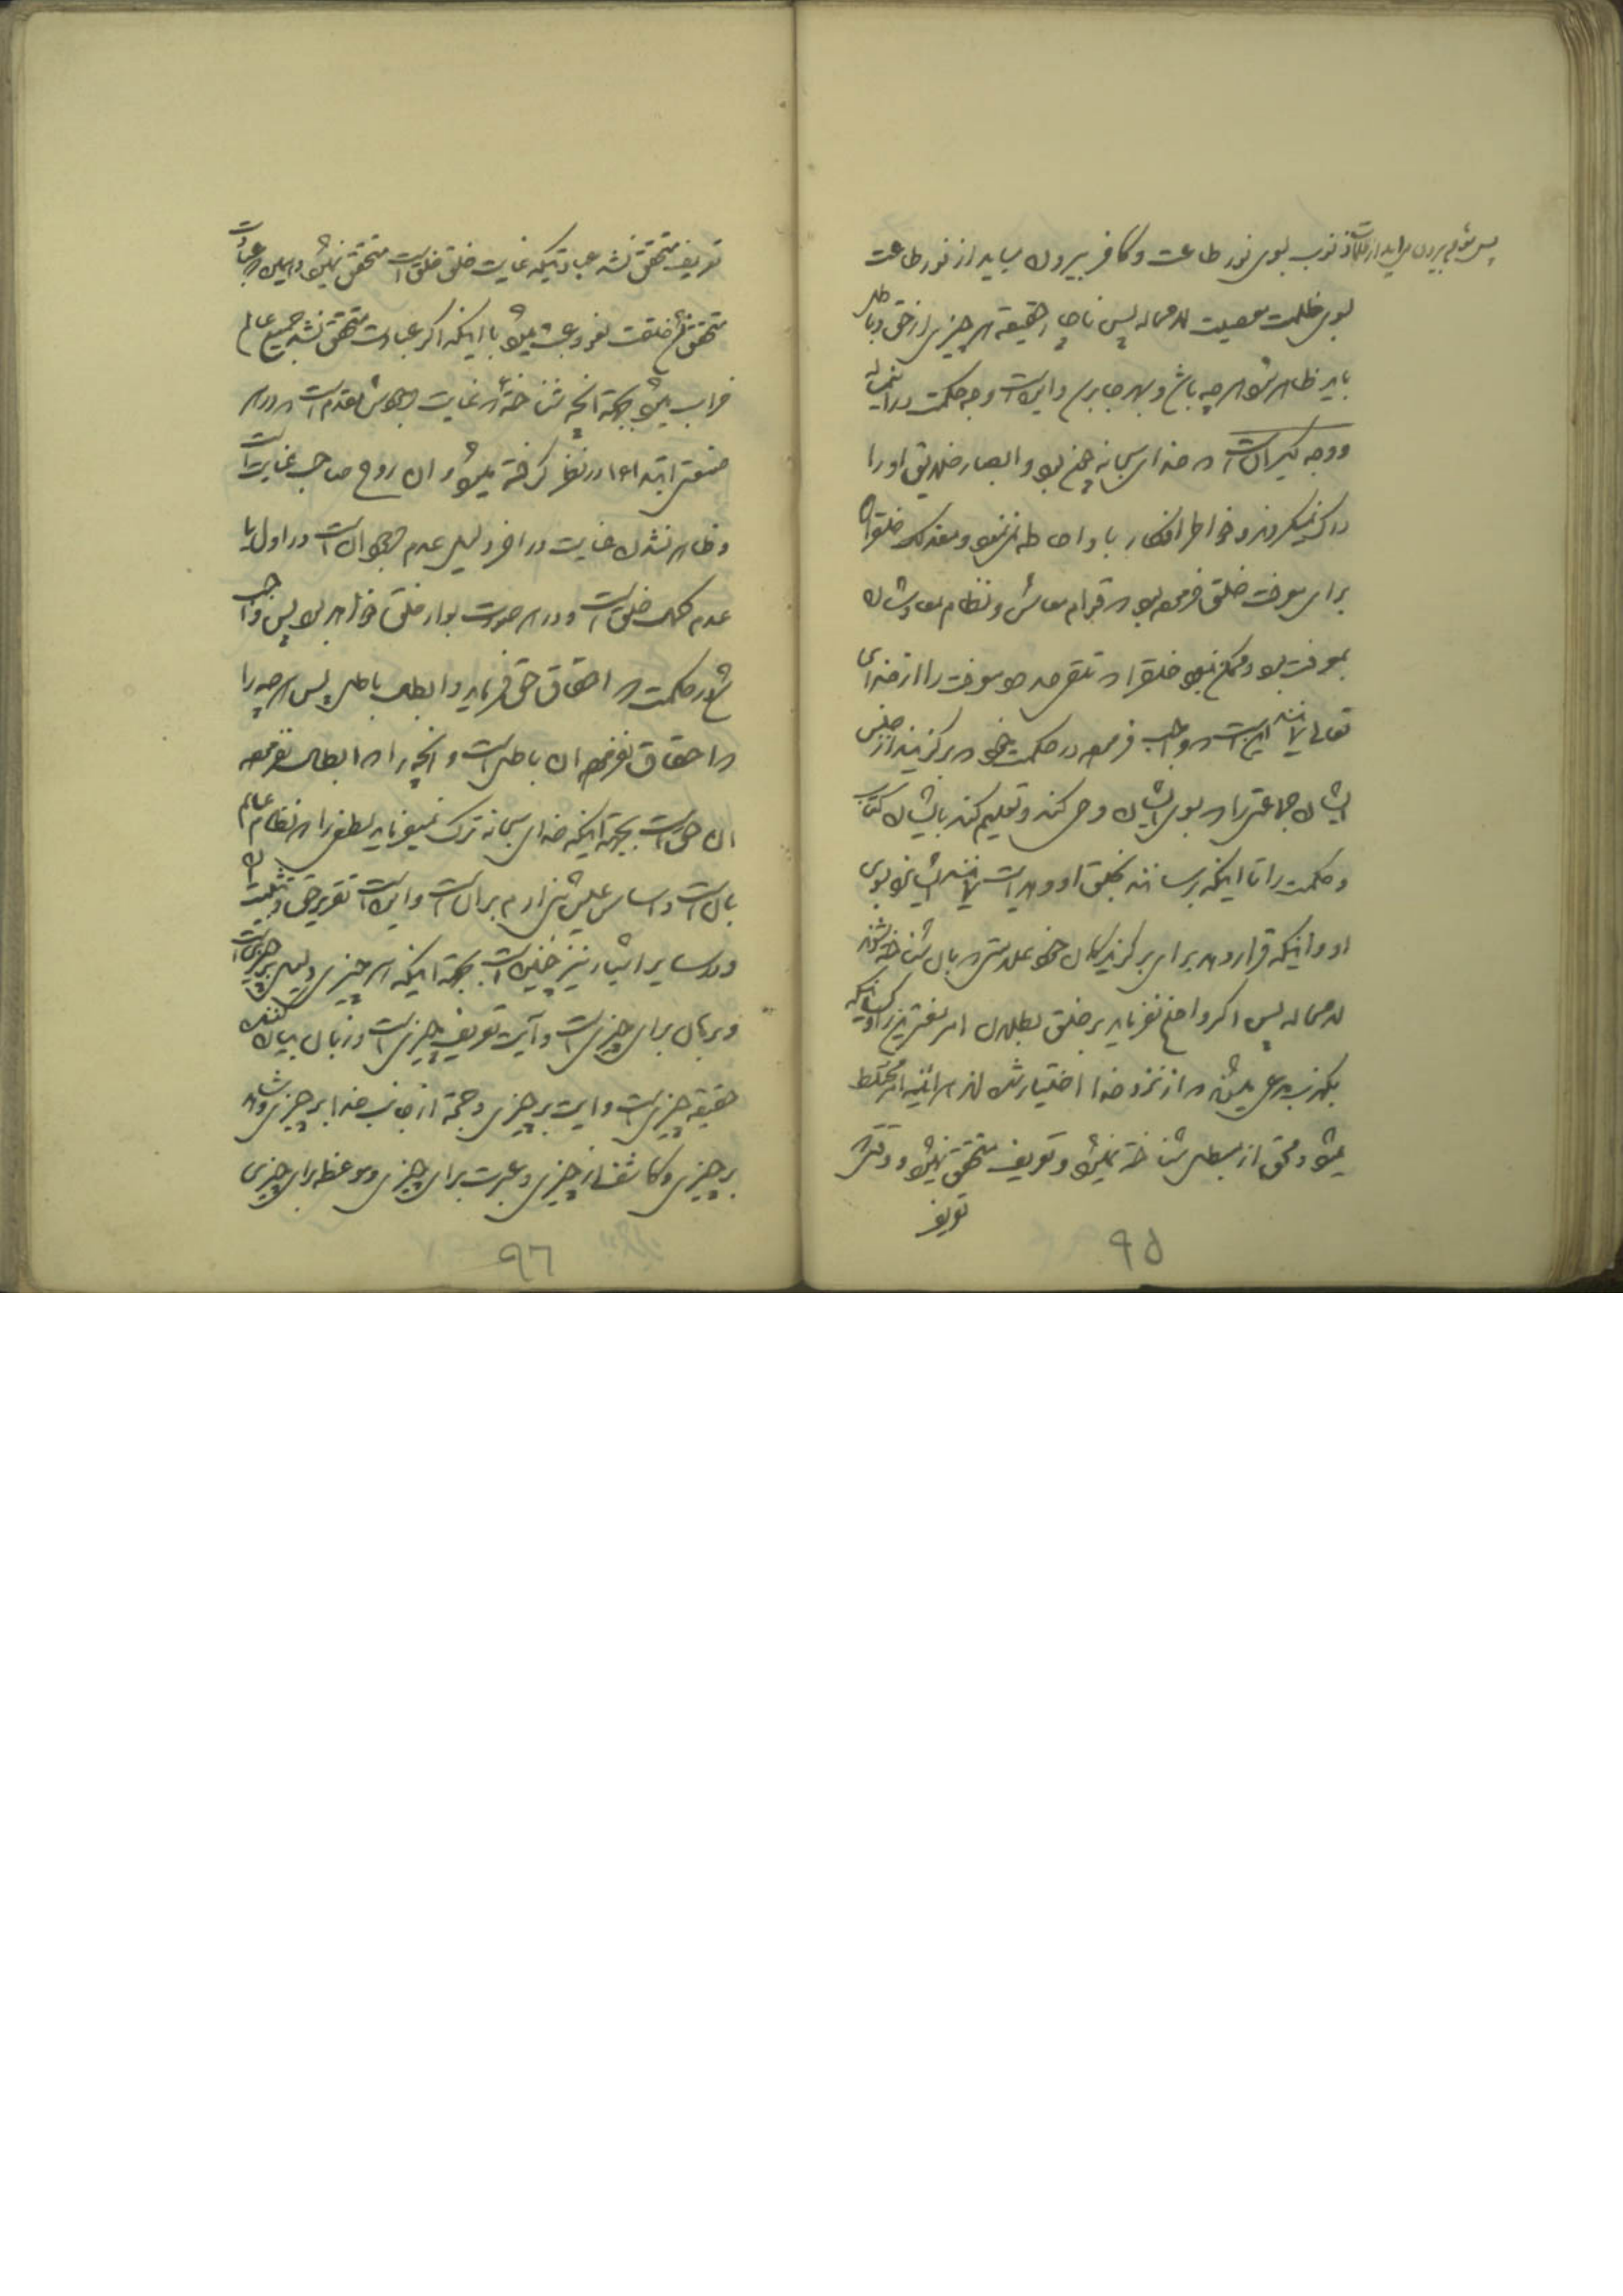 پس مؤمن بیرون میاید از ظلمات ذنوب بسوی نور طاعت و کافر بیرون میاید از نور طاعت
بسوی ظلمت معصیت لامحاله پس ناچار حقیقة هر چیزی از حق و باطل
باید ظاهر شود هرچه باشد و بهر جا برسد و این است وجه حکمت در این مساله
و وجه دیگر آن است که خدای سبحانه چنین بود و ابصار خلایق او را
درک نمیکردند و خواطر افکار باو احاطه نمینمود و معذلک خلق را
برای معرفت خلق فرموده بود که قوام معاش و نظام معادشان
بمعرفت بود و ممکن نبود خلق را که تلقی معرفت را از خدای
تعالی لابد این است که واجب فرموده در حکمت خود که برگزیند از جنس
ایشان جماعتی را که بسوی ایشان وحی کند و تعلیم کند بایشان کتاب
و حکمت را تا اینکه برسانند بخلق او و هدایت نمایند ایشانرا بسوی
او و اینکه قرار دهد برای برگزیدگان خود علامتی که بآن شناخته شوند
لامحاله پس اگر واضح نفرماید بر خلق بطلان امر مفتریرا و کسانیکه
بکذب مدعی میشوند که از نزد خدا اختیار شده‌اند هرآینه امر مختلط
میشود و محق از مبطل شناخته نمیشود و تعریف متحقق نمیشود و وقتیکه
تعریف
۹۵
تعریف متحقق نشد عبادتیکه غایت خلق خلق است متحقق نمیشود و هرگاه عبادت
متحقق نشد خلقت لغو و عبث میشود با اینکه اگر عبادت متحقق نشد جمیع عالم
خراب میشود بجهة آنچه شناخته که غایت وجودش مقدم است که در هر
صنعتی ابتداء او در نظر گرفته میشود و آن روح صاحب غایت است
و ظاهر نشدن غایت در آخر دلیل عدم وجود آن است در اول یا
عدم کمال خلق است و در هر صورت بوار خلق خواهد بود پس واجب
شد در حکمت که احقاق حق فرماید و ابطال باطل پس هرچه را
که احقاق نفرموده آن باطل است و آنچه را که ابطال نفرموده
آن حق است بجهة اینکه خدای سبحانه ترک نمیفرماید لطفی را که نظام عالم
بآن است و اساس عیش بنی آدم بر آن است و این است تقریر حق و تثبیت آن
و در سایر اشیاء نیز چنین است بجهة اینکه هر چیزی دلیل بر چیزی است
و برهان برای چیزی است و آیت تعریف چیزی است و زبان بیان کننده
حقیقة چیزی است و آیت بر چیزی و حجة از جانب خدا بر چیزی و شاهد
بر چیزی و کاشف از چیزی و عبرت برای چیزی و موعظه برای چیزی
۹۶